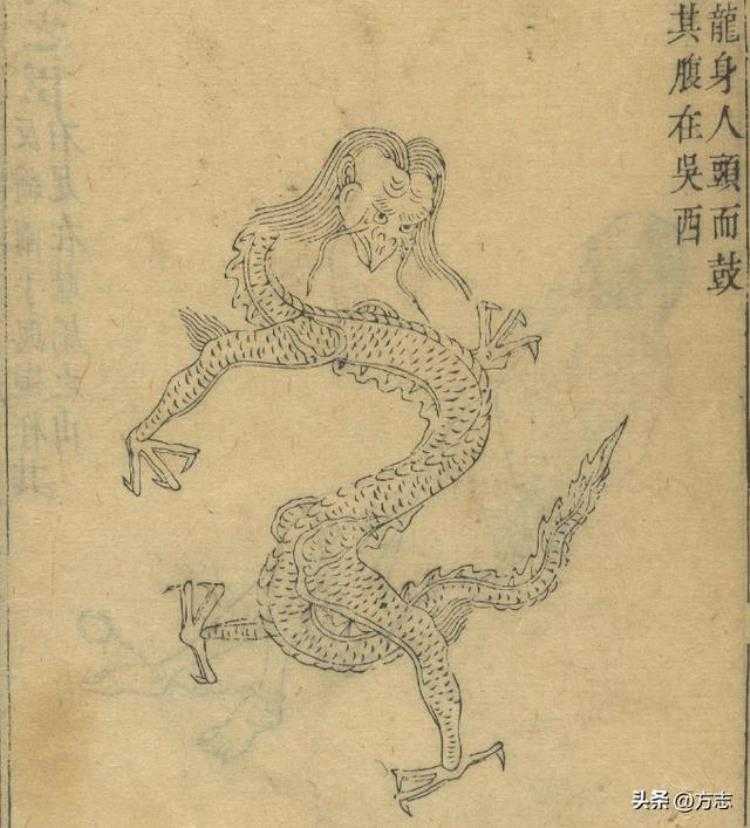 龍身人頭而鼓
其腹在吳西
头条 @方志